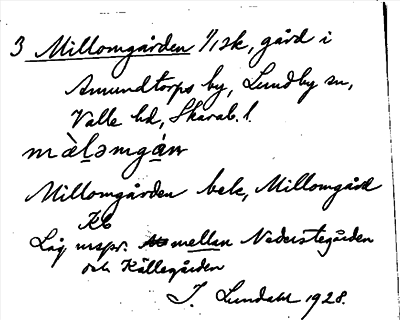 3 Millomgården 1/12k, gård i
Amundtorps by, Lundby sn,
Valle hd, Skarab. l.
mȁlǝmgán
Millomgården bek, Millomgård
Kb
Låg urspr. mellan Nederstegården
och Källegården
J. Lundahl 1928.